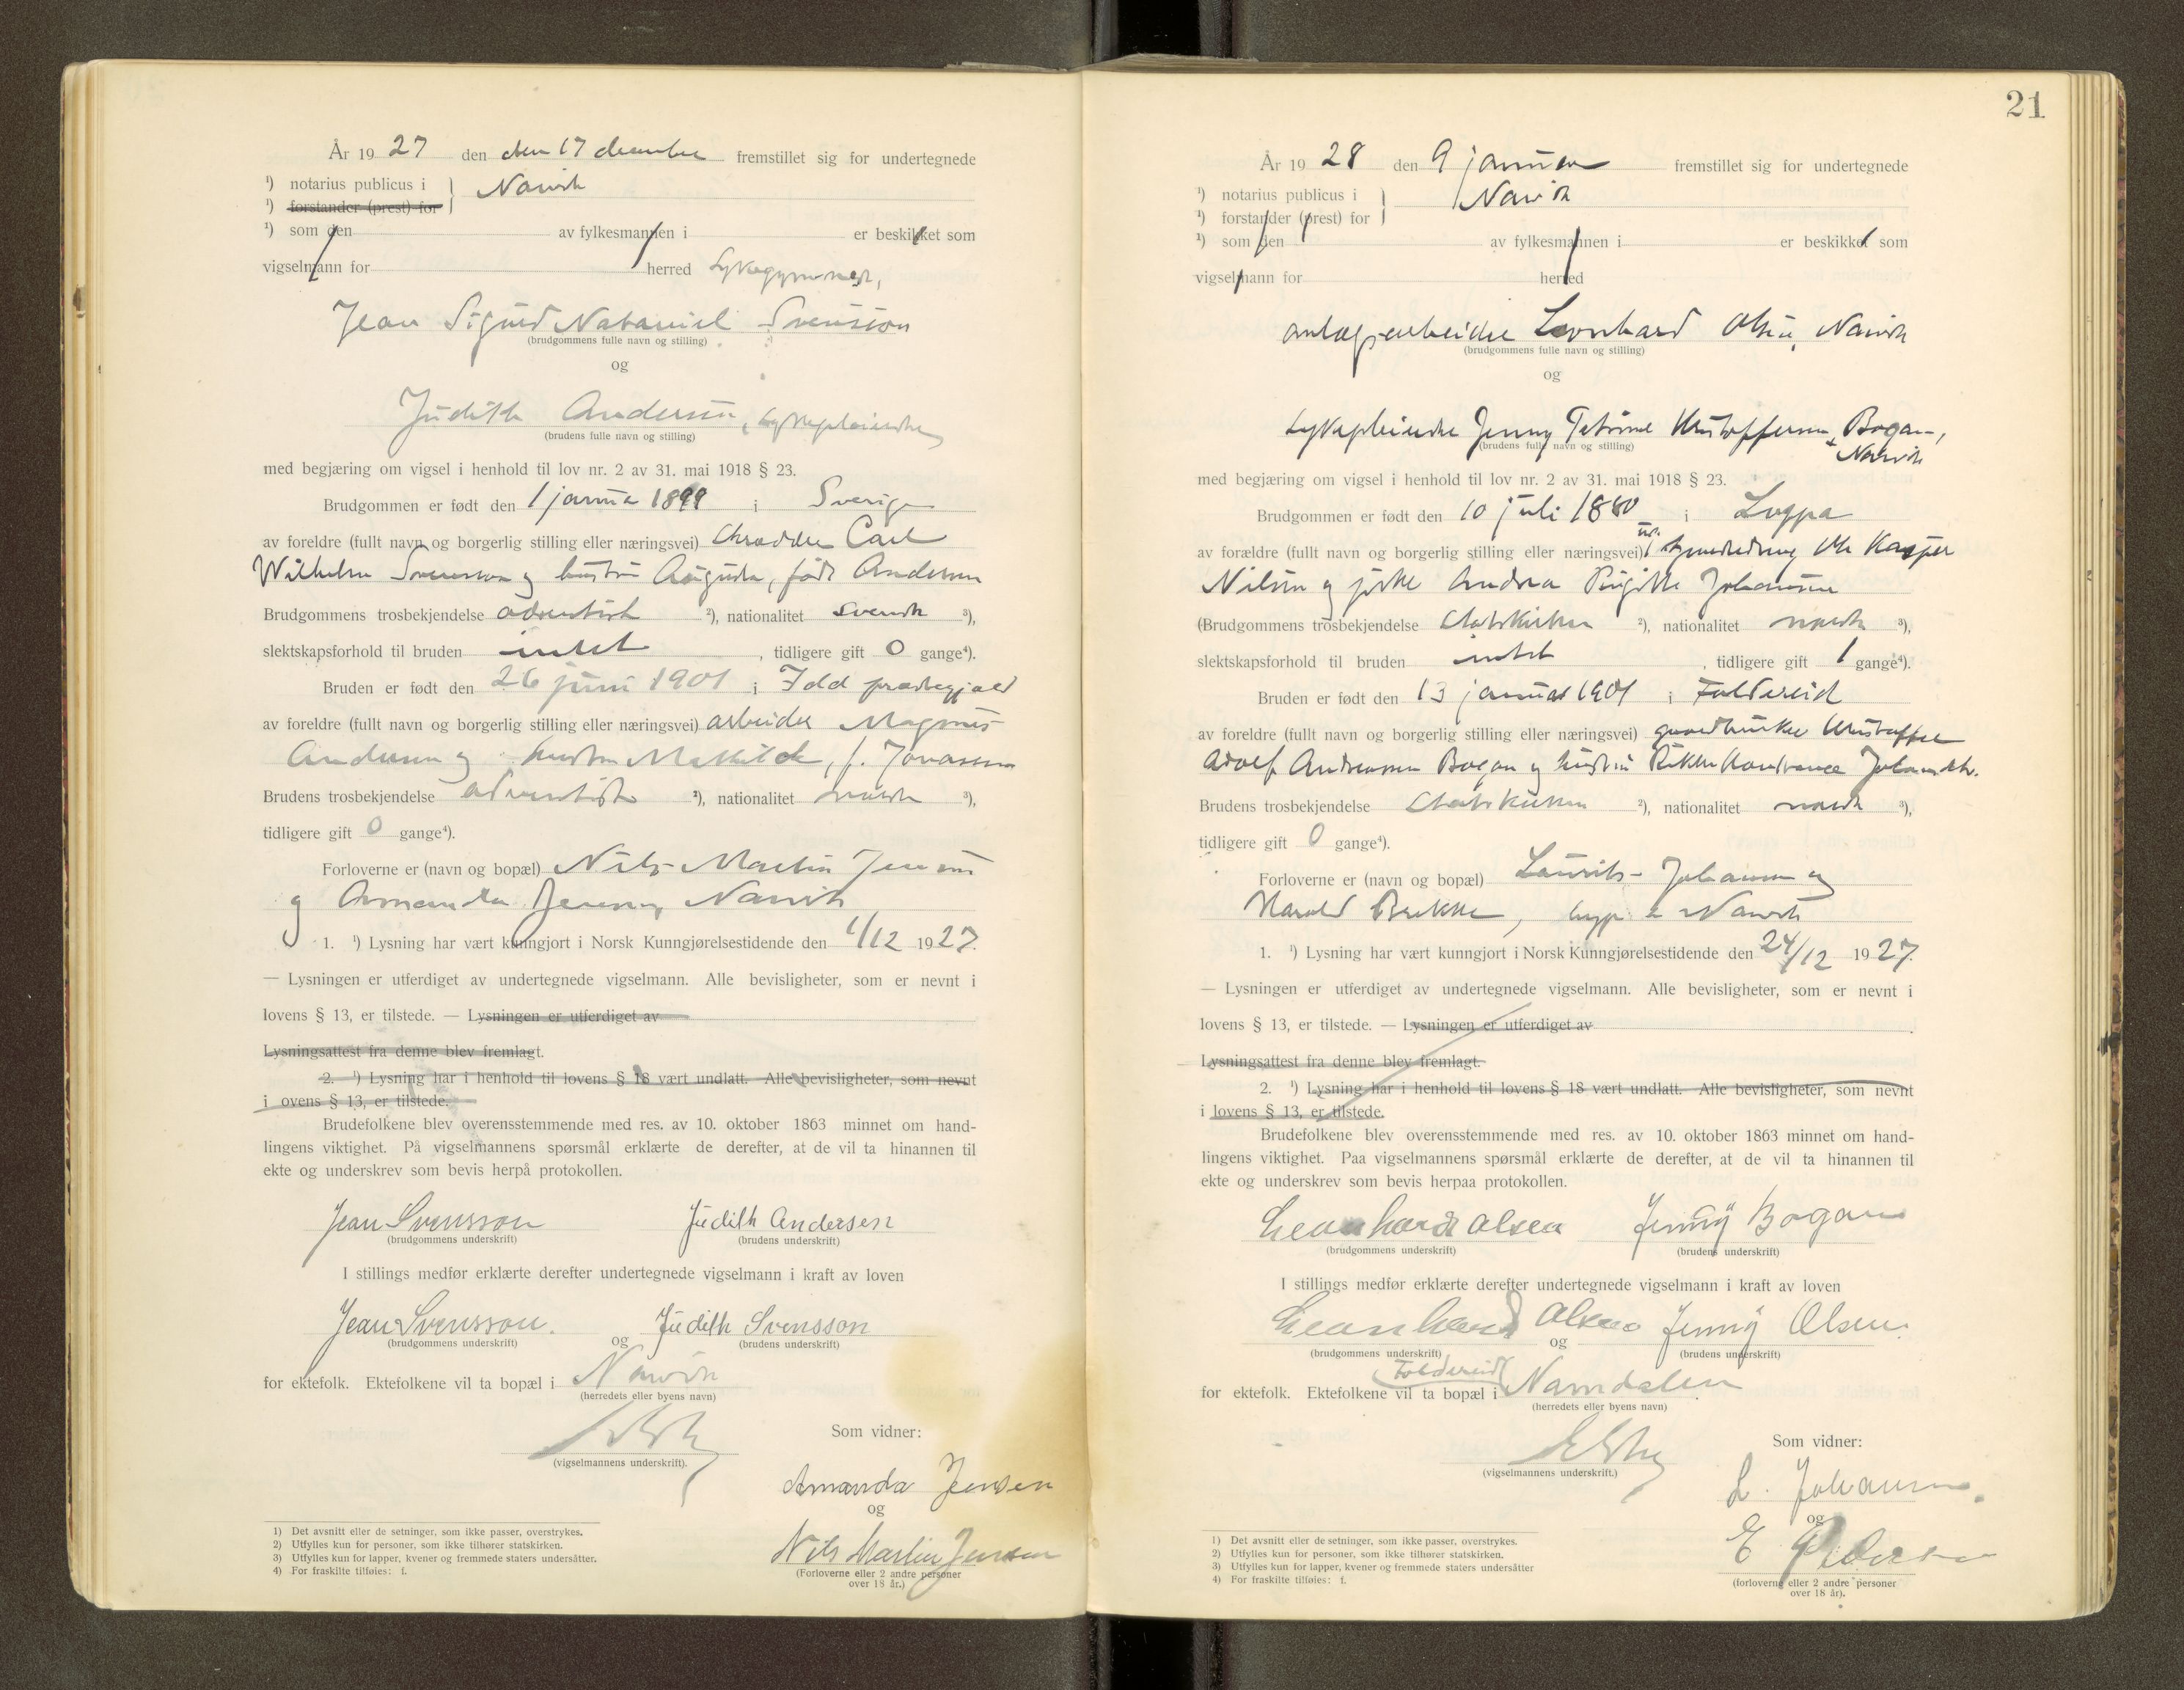 År 19 27 den den 17 december fremstillet sig for undertegnede
¹) notarius publicus i } Narvik
¹) forstander (prest) for
¹) som den av fylkesmannen i er beskikket som
vigselmann for herred sykegymnast,
Jean Sigurd Natanael Svensson
(brudgommens fulle navn og stilling)
og
Judith Andersen, sykepleierske
(brudens fulle navn og stilling)
med begjæring om vigsel i henhold til lov nr. 2 av 31. mai 1918 § 23.
Brudgommen er født den 1 januar 1899 i Sverige
av foreldre (fullt navn og borgerlig stilling eller næringsvei) skrædder Carl
Wilhelm Svensson og hustru Augusta, født Andersen
Brudgommens trosbekjendelse adventist ²), nationalitet svensk ³),
slektskapsforhold til bruden intet , tidligere gift 0 gange⁴).
Bruden er født den 26 juni 1901 i Idd prestegjæld
av foreldre (fullt navn og borgerlig stilling eller næringsvei) arbeider Magnus
Andersen og hustru Mathilde, f. Jonassen
Brudens trosbekjendelse adventist ²), nationalitet norsk ³),
tidligere gift 0 gange⁴).
Forloverne er (navn og bopæl) Nils Martin Jensen
og Amanda Jensen, Narvik
1. ¹) Lysning har vært kunngjort i Norsk Kunngjørelsestidende den 1/12 1927.
— Lysningen er utferdiget av undertegnede vigselmann. Alle bevisligheter, som er nevnt i
lovens § 13, er tilstede. — Lysningen er utferdiget av
Lysningsattest fra denne blev fremlagt.
2. ¹) Lysning har i henhold til lovens § 18 vært undlatt. Alle bevisligheter, som nevnt
i ovens § 13, er tilstede.
Brudefolkene blev overensstemmende med res. av 10. oktober 1863 minnet om hand-
lingens viktighet. På vigselmannens spørsmål erklærte de derefter, at de vil ta hinannen til
ekte og underskrev som bevis herpå protokollen.
Jean Svensson Judith Andersen
(brudgommens underskrift) (brudens underskrift)
I stillings medfør erklærte derefter undertegnede vigselmann i kraft av loven
Jean Svensson. og Judith Svensson
(brudgommens underskrift) (brudens underskrift)
for ektefolk. Ektefolkene vil ta bopæl i Narvik
(herredets eller byens navn)
(vigselmannens underskrift).
Som vidner:
Amanda Jensen
og
Nils Martin Jensen
(Forloverne eller 2 andre personer
over 18 år.)
1) Det avsnitt eller de setninger, som ikke passer, overstrykes.
2) Utfylles kun for personer, som ikke tilhører statskirken.
3) Utfylles kun for lapper, kvener og fremmede staters undersåtter.
4) For fraskilte tilføies: f.
21
År 19 28 den 9 januar fremstillet sig for undertegnede
¹) notarius publicus i } Narvik
¹) forstander (prest) for
¹) som den av fylkesmannen i er beskikket som
vigselmann for herred
anlægsarbeider Leonhard Olsen, Narvik
(brudgommens fulle navn og stilling)
og
sykepleierske Jenny Petrine Kristoffersen Bogan,
(brudens fulle navn og stilling)
Narvik
med begjæring om vigsel i henhold til lov nr. 2 av 31. mai 1918 § 23.
Brudgommen er født den 10 juli 1880 i Loppa
av forældre (fullt navn og borgerlig stilling eller næringsvei) Ole Kasper
Nilsen og pike Andrea Birgitte Johansen
(Brudgommens trosbekjendelse Statskirken ²), nationalitet norsk ³),
slektskapsforhold til bruden intet , tidligere gift 1 gange⁴).
Bruden er født den 13 januar 1901 i Foldereid
av foreldre (fullt navn og borgerlig stilling eller næringsvei) gaardbruker Kristoffer
Adolf Andreassen Bogan og hustru Rikke Konstance Johansdtr.
Brudens trosbekjendelse Statskirken ²), nationalitet norsk ³),
tidligere gift 0 gange⁴).
Forloverne er (navn og bopæl) Laurits Johansen og
Harald Brekke, begge av Narvik
1. ¹) Lysning har vært kunngjort i Norsk Kunngjørelsestidende den 24/12 1927.
— Lysningen er utferdiget av undertegnede vigselmann. Alle bevisligheter, som er nevnt i
lovens § 13, er tilstede. — Lysningen er utferdiget av .
Lysningsattest fra denne blev fremlagt.
2. ¹) Lysning har i henhold til lovens § 18 vært undlatt. Alle bevisligheter, som nevnt
i lovens § 13, er tilstede.
Brudefolkene blev overensstemmende med res. av 10. oktober 1863 minnet om hand-
lingens viktighet. Paa vigselmannens spørsmål erklærte de derefter, at de vil ta hinannen til
ekte og underskrev som bevis herpaa protokollen.
Leonhard Olsen Jenny Bogan
(brudgommens underskrift) (brudens underskrift)
I stillings medfør erklærte derefter undertegnede vigselmann i kraft av loven
Leonhard Olsen og Jenny Olsen.
(brudgommens underskrift) (brudens underskrift)
Foldereid
for ektefolk. Ektefolkene vil ta bopæl i Namdalen
(herredets eller byens navn)
(vigselmannens underskrift.)
Som vidner:
L. Johansen.
og
E Pedersen
(forloverne eller 2 andre personer
over 18 år).
1) Det avsnitt eller de setninger, som ikke passer, overstrykes.
2) Utfylles kun for personer, som ikke tilhører statskirken.
3) Utfylles kun for lapper, kvener og fremmede staters undersåtter
4) For fraskilte tilføies: f.